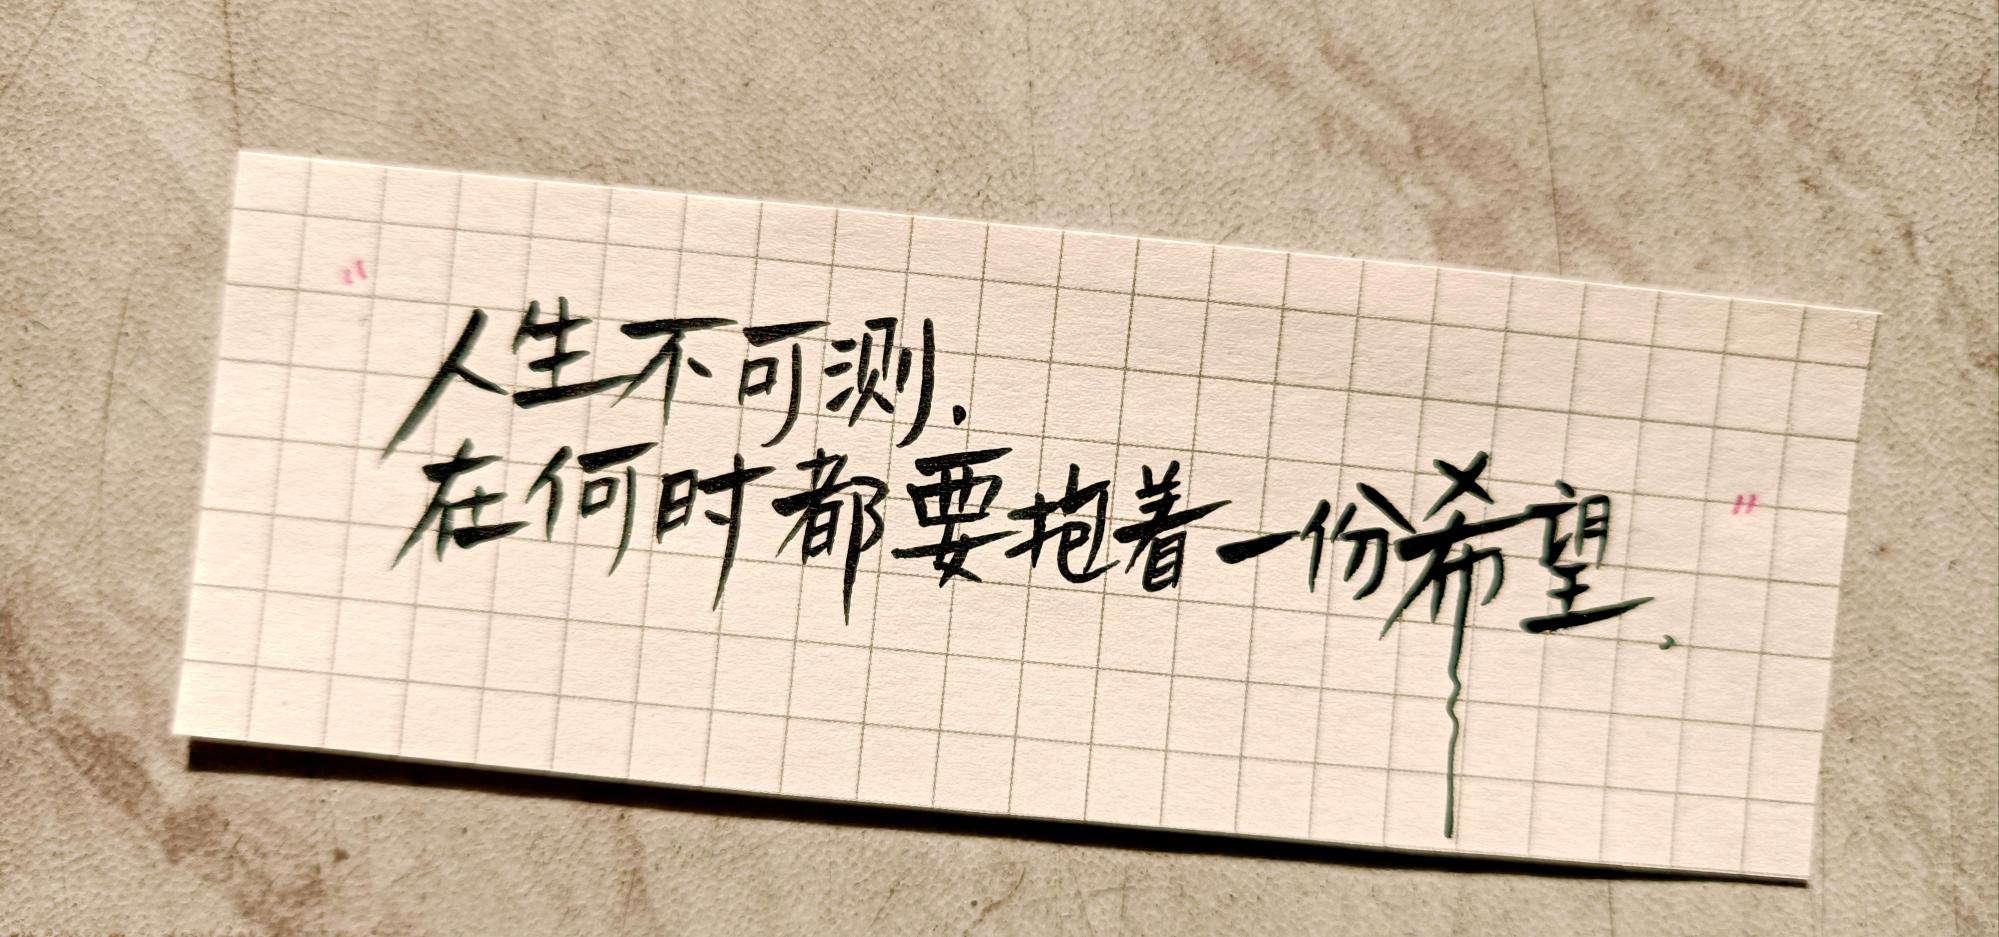 "人生不可测.
在何时都要抱着一份希望."